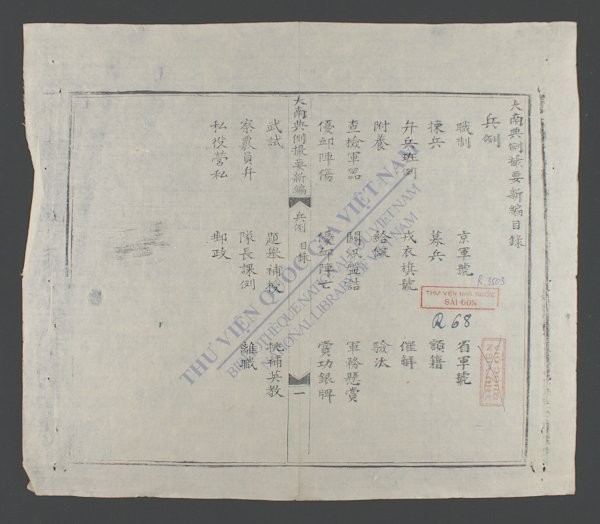 大南典例撮要新編目錄
兵例
職制 京軍號 省軍號
揀兵 募兵 額籍
弁兵班例 戎衣旗號 催解
附養 給假 驗汰
查檢軍器 關汛盤詰 軍務懸賞
優卹陣傷 優卹陣亡 賞功銀牌
大南典例撮要新編 兵例 目錄 一
武試 題舉補教 挑補英教
察農員弁 隊長課例 離職
私役營私 郵政
R.3503
THƯ VIỆN NHÀ NƯỚC
SÀI GÒN
R 68
THƯ VIỆN QUỐC GIA VIỆT NAM
BIBLIOTHÈQUE NATIONALE DU VIETNAM
NATIONAL LIBRARY OF VIETNAM